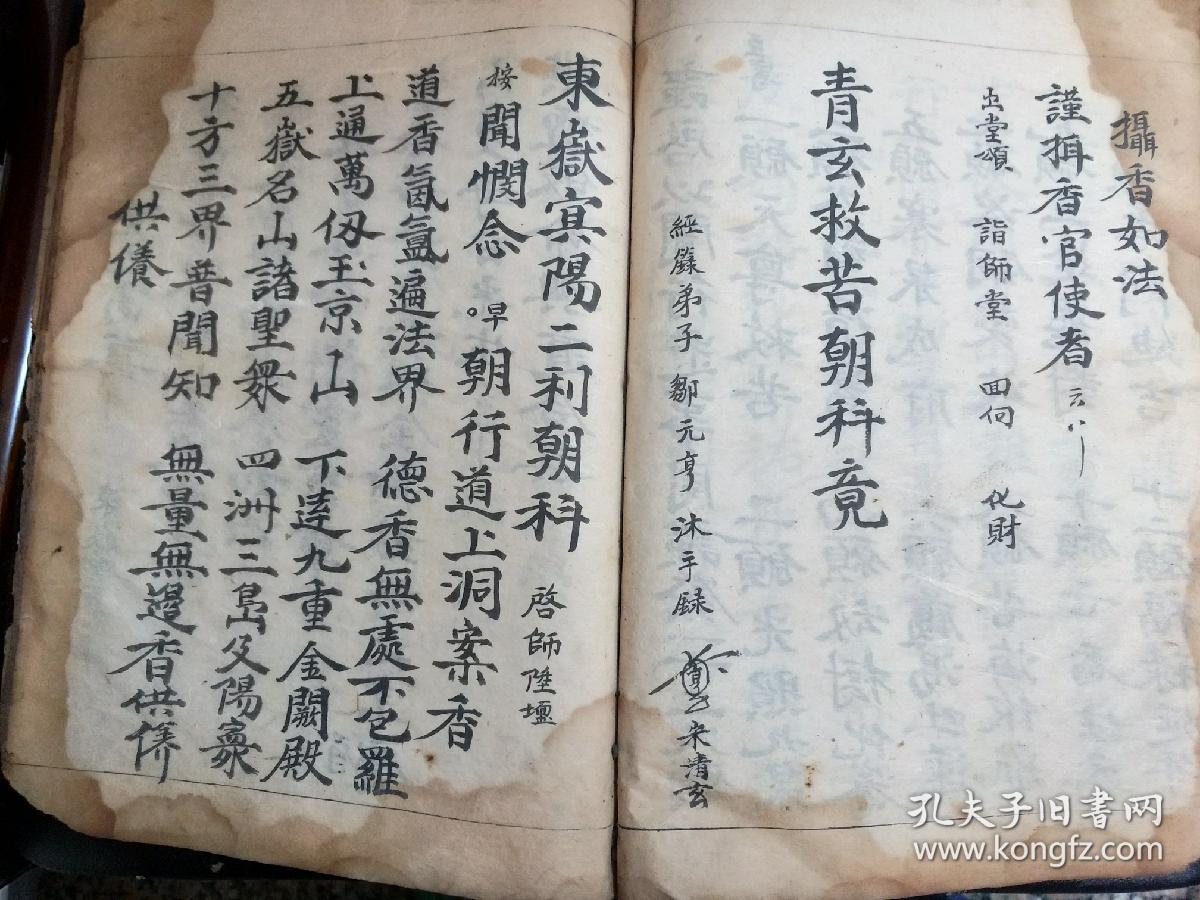 攝香如法
謹捐香官使者 云々
出堂頌 詣師堂 回向 化財
青玄救苦朝科竟
經籙弟子鄒元亨沐手録 宋清玄
東嶽㝠陽二利朝科 啓師陞壇
按聞憫念 早朝行道上洞案香
道香氤氲遍法界 德香無處不包羅
上通萬仭玉京山 下達九重金闕殿
五嶽名山諸聖衆 四洲三島及陽寰
十方三界普聞知 無量無邊香供儀
供儀
孔夫子旧书网
www.kongfz.com